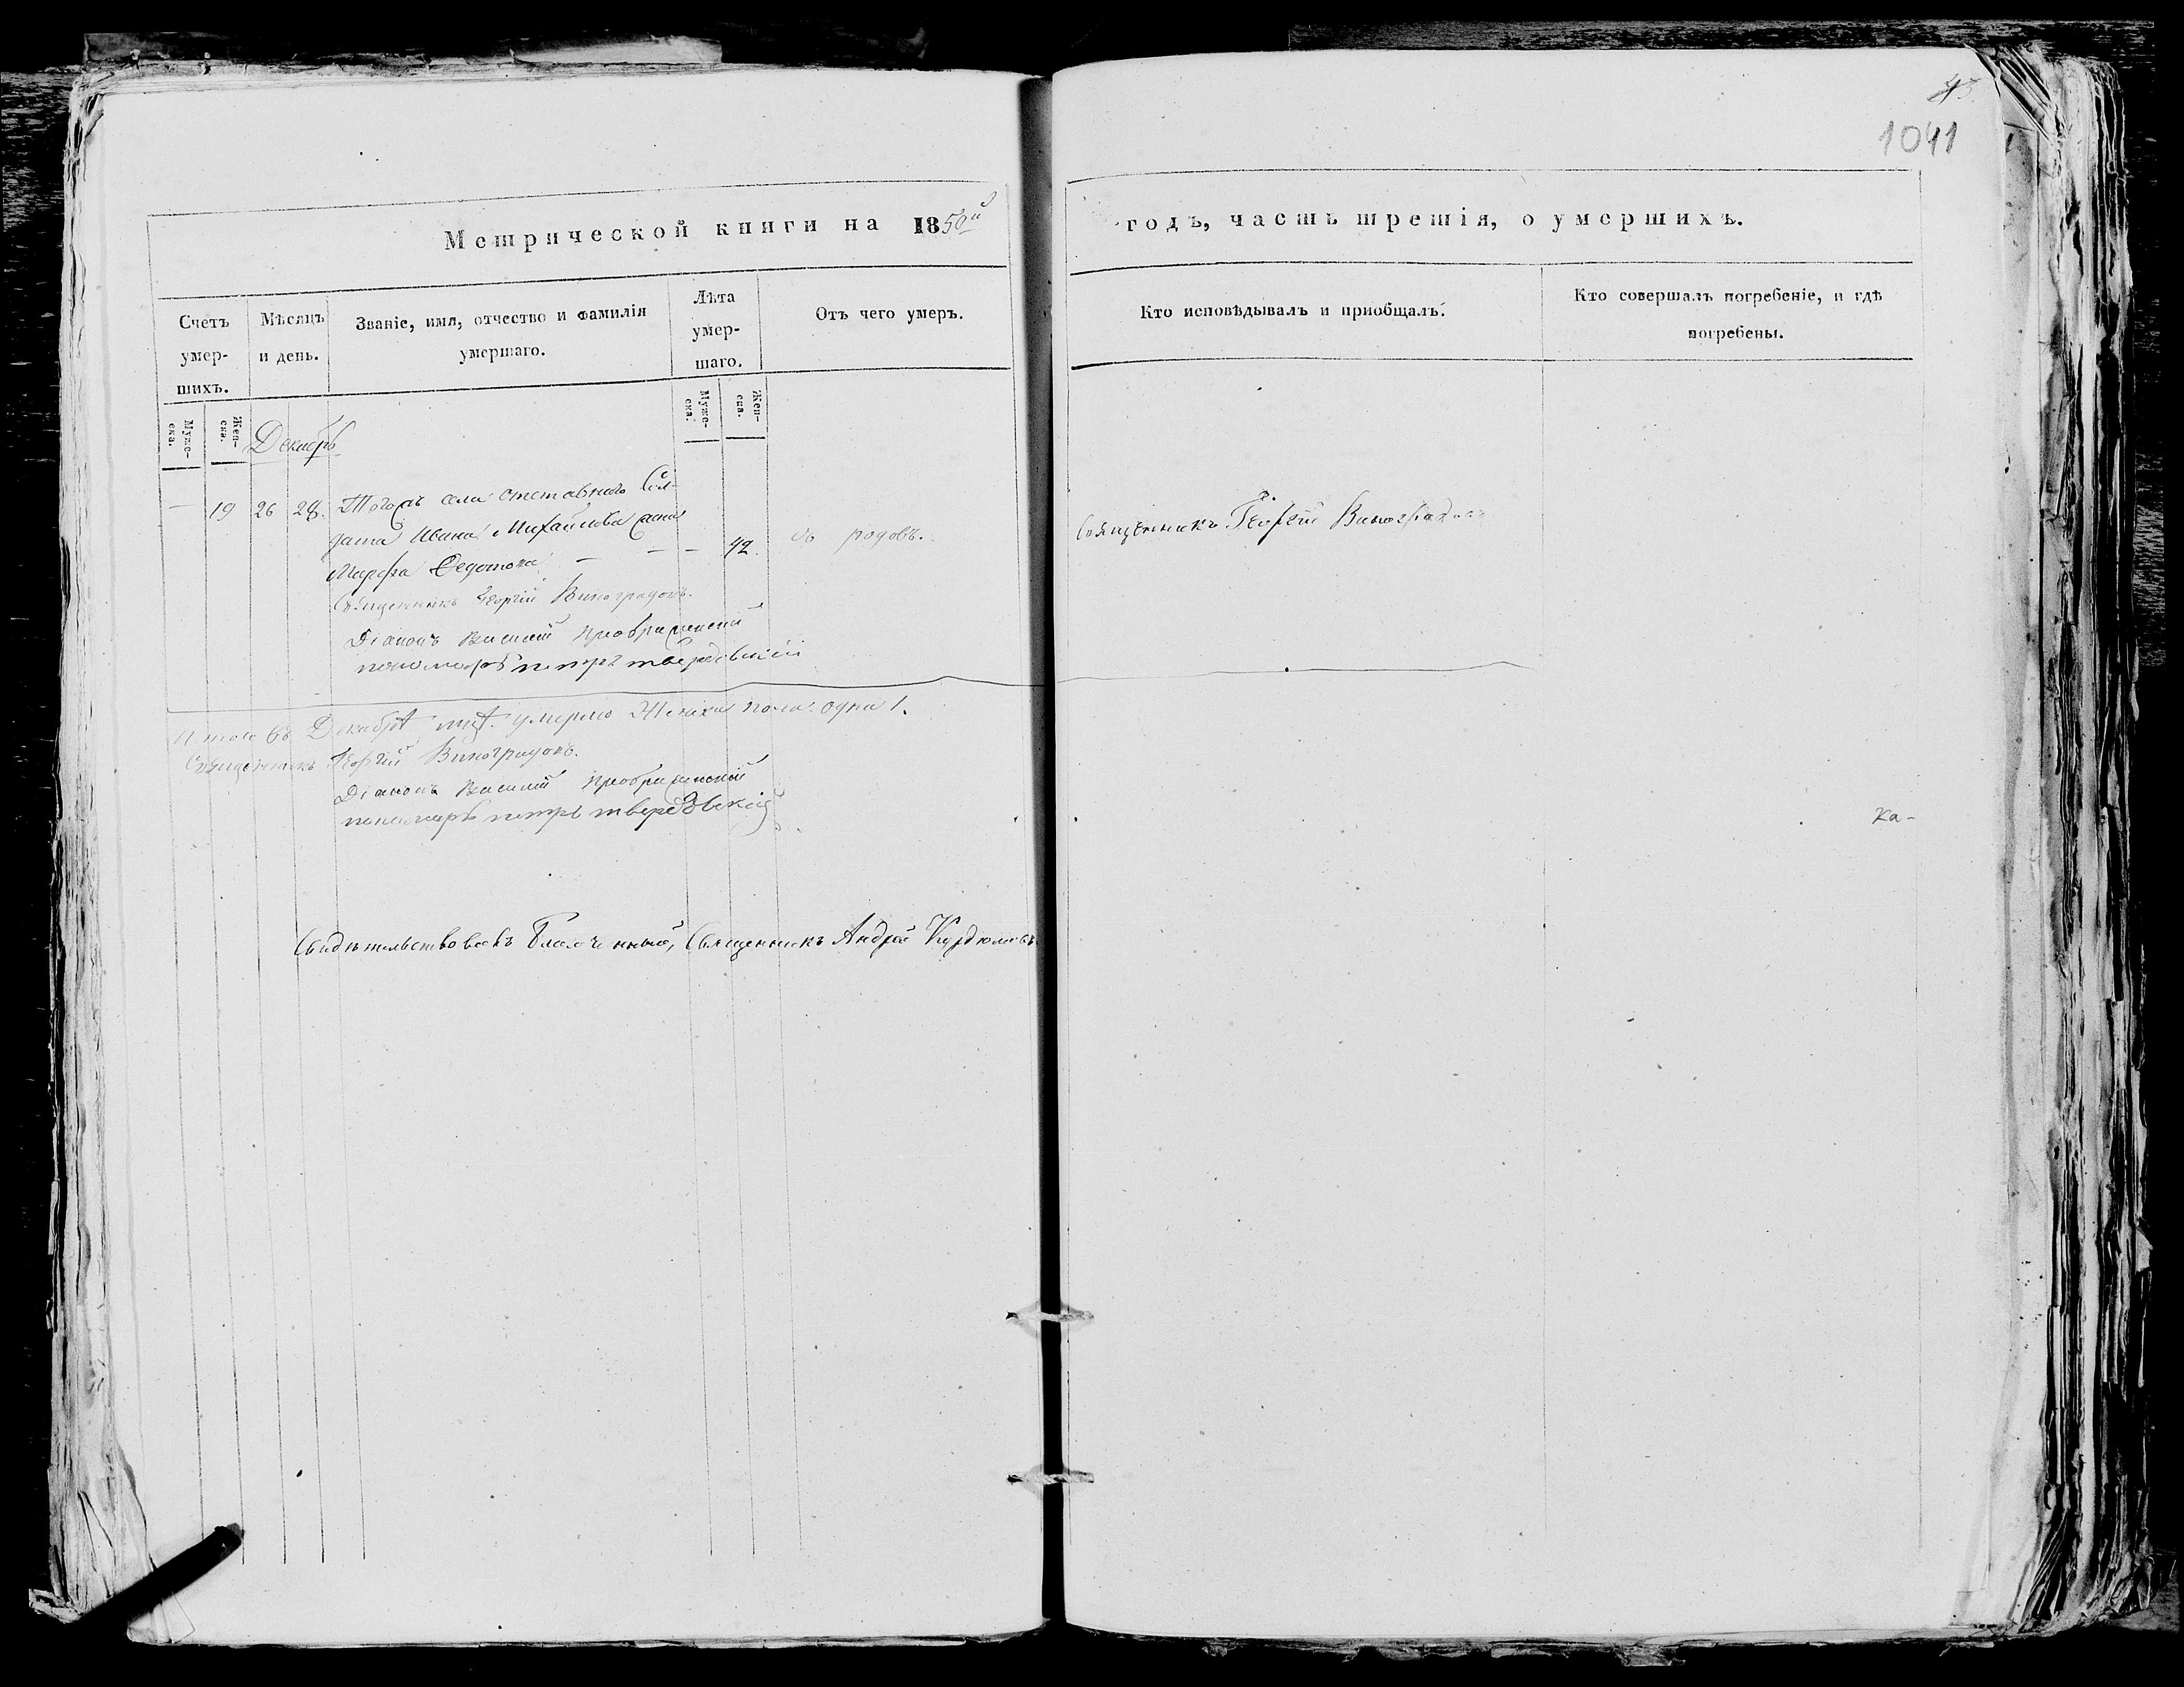 43.
1041
Метрической книги на 1850й
годъ, часть третія, о умершихъ.
Счетъ умер-шихъ.
Мѣсяцъ и день.
Званіе, имя, отчество и фамилія умершаго.
Лѣта умер-шаго.
Отъ чего умеръ.
Кто исповѣдывалъ и пріобщалъ.
Кто совершалъ погребеніе, и гдѣ погребены.
Муже-ска.
Жен-ска.
Муже-ска.
Жен-ска.
Декабрь
— 19 26 28. Тогожъ села отставнаго Сол-
дата Ивана Михайлова жена
Марфа Федотова — — — 42. съ родовъ.
Священникъ Георгій Виноградовъ
Священникъ Георгій Виноградовъ.
Діаконъ Василій Преображенскій
пономарь петръ твердовскій
Итого въ Декабрѣ мцѣ. умерло Женска пола одна 1.
Священникъ Георгій Виноградовъ.
Діаконъ Василій Преображенскій
пономарь петръ твердовскій
Ка-
Свидѣтельствовалъ Благочинный, Священникъ Андрей Курдюмовъ